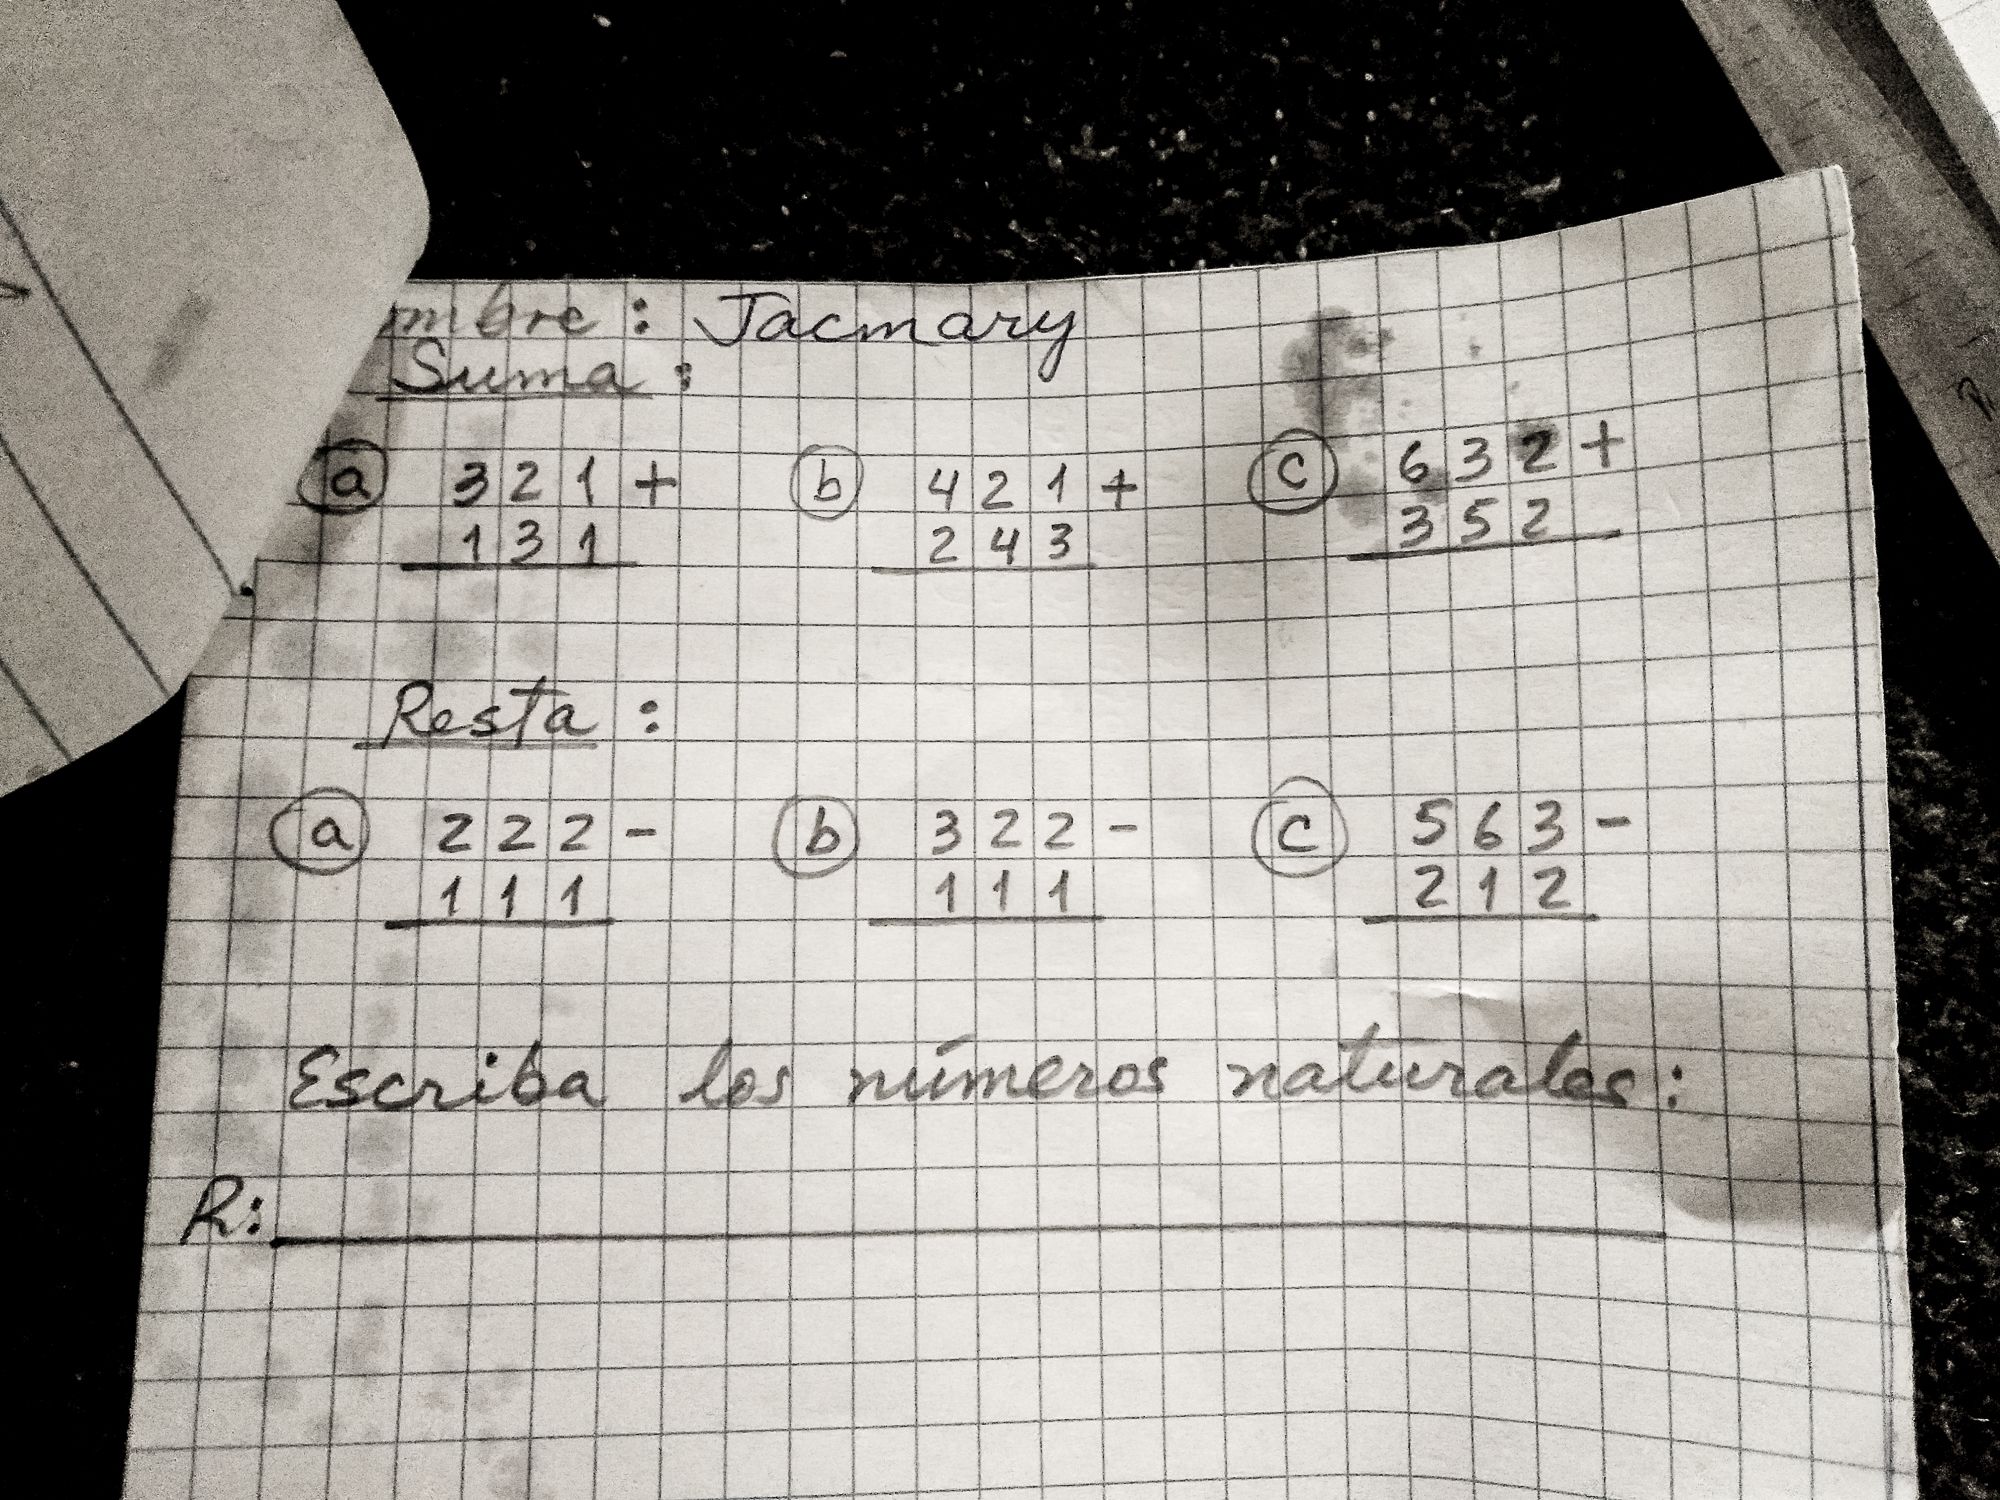 mbre: Jacmary
Suma:
a 321+ b 421+ c 632+
131 243 352
Resta:
a 222- b 322- c 563-
111 111 212
Escriba los números naturales:
R: